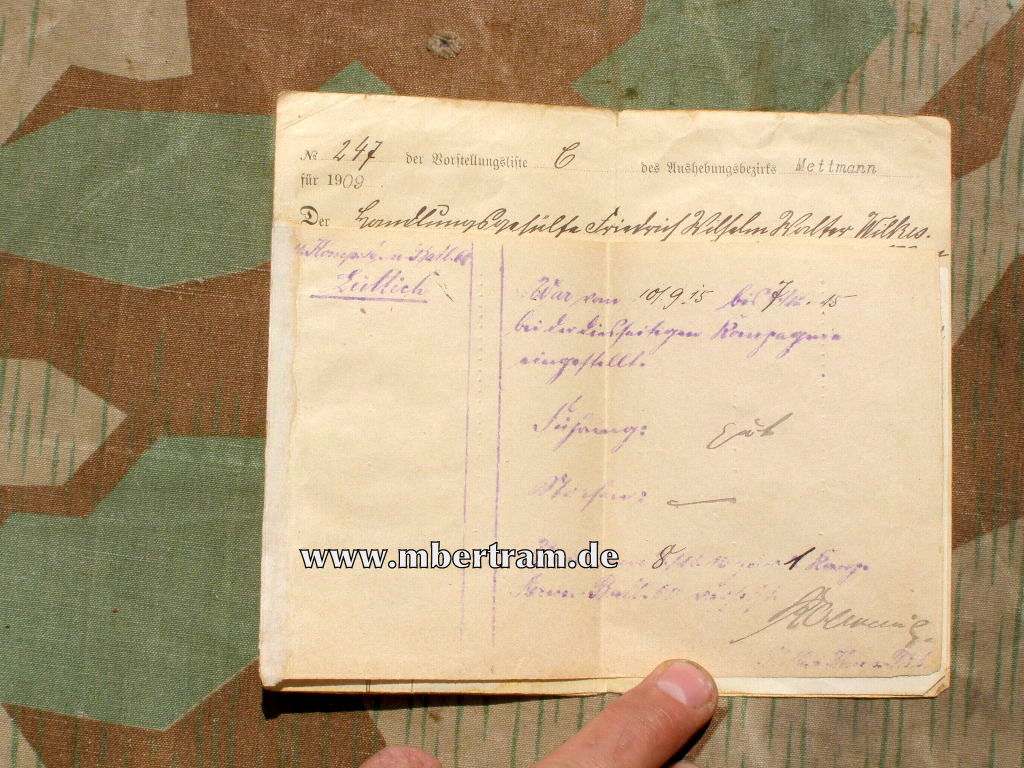 № 247 der Vorstellungsliste C des Aushebungsbezirks Mettmann
für 1909.
Der Handlungsgehülfe Friedrich Wilhelm Walter Wilkes.
Lüttich
War vom 10/9.15 bis 7/12.15
bei der diesseitigen Kompagnie
eingestellt.
Führung: gut
Strafen: —
www.mbertram.de
8. 1 Komp.